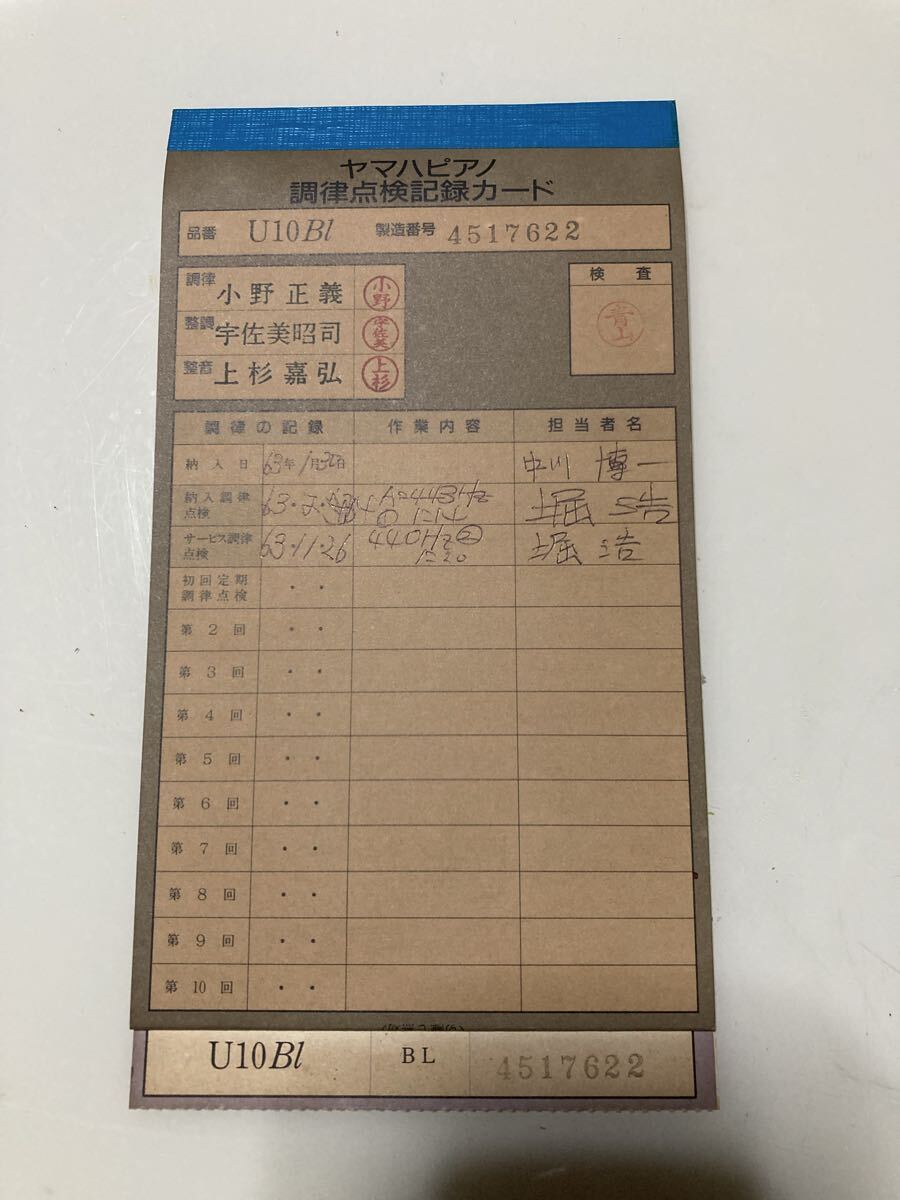 ヤマハピアノ
調律点検記録カード
品番 U10Bl 製造番号 4517622
調律 小野正義 小野
整調 宇佐美昭司 宇佐美
整音 上杉嘉弘 上杉
検査
青山
調律の記録 作業内容 担当者名
納入日 63年1月30日 中川 博一
納入調律 63・2・ A=443Hz 堀 浩
点検 ①
サービス調律 63・11・26 440Hz② 堀 浩
点検 1=20
初回定期
調律点検 ・ ・
第2回 ・ ・
第3回 ・ ・
第4回 ・ ・
第5回 ・ ・
第6回 ・ ・
第7回 ・ ・
第8回 ・ ・
第9回 ・ ・
第10回 ・ ・
U10Bl BL 4517622